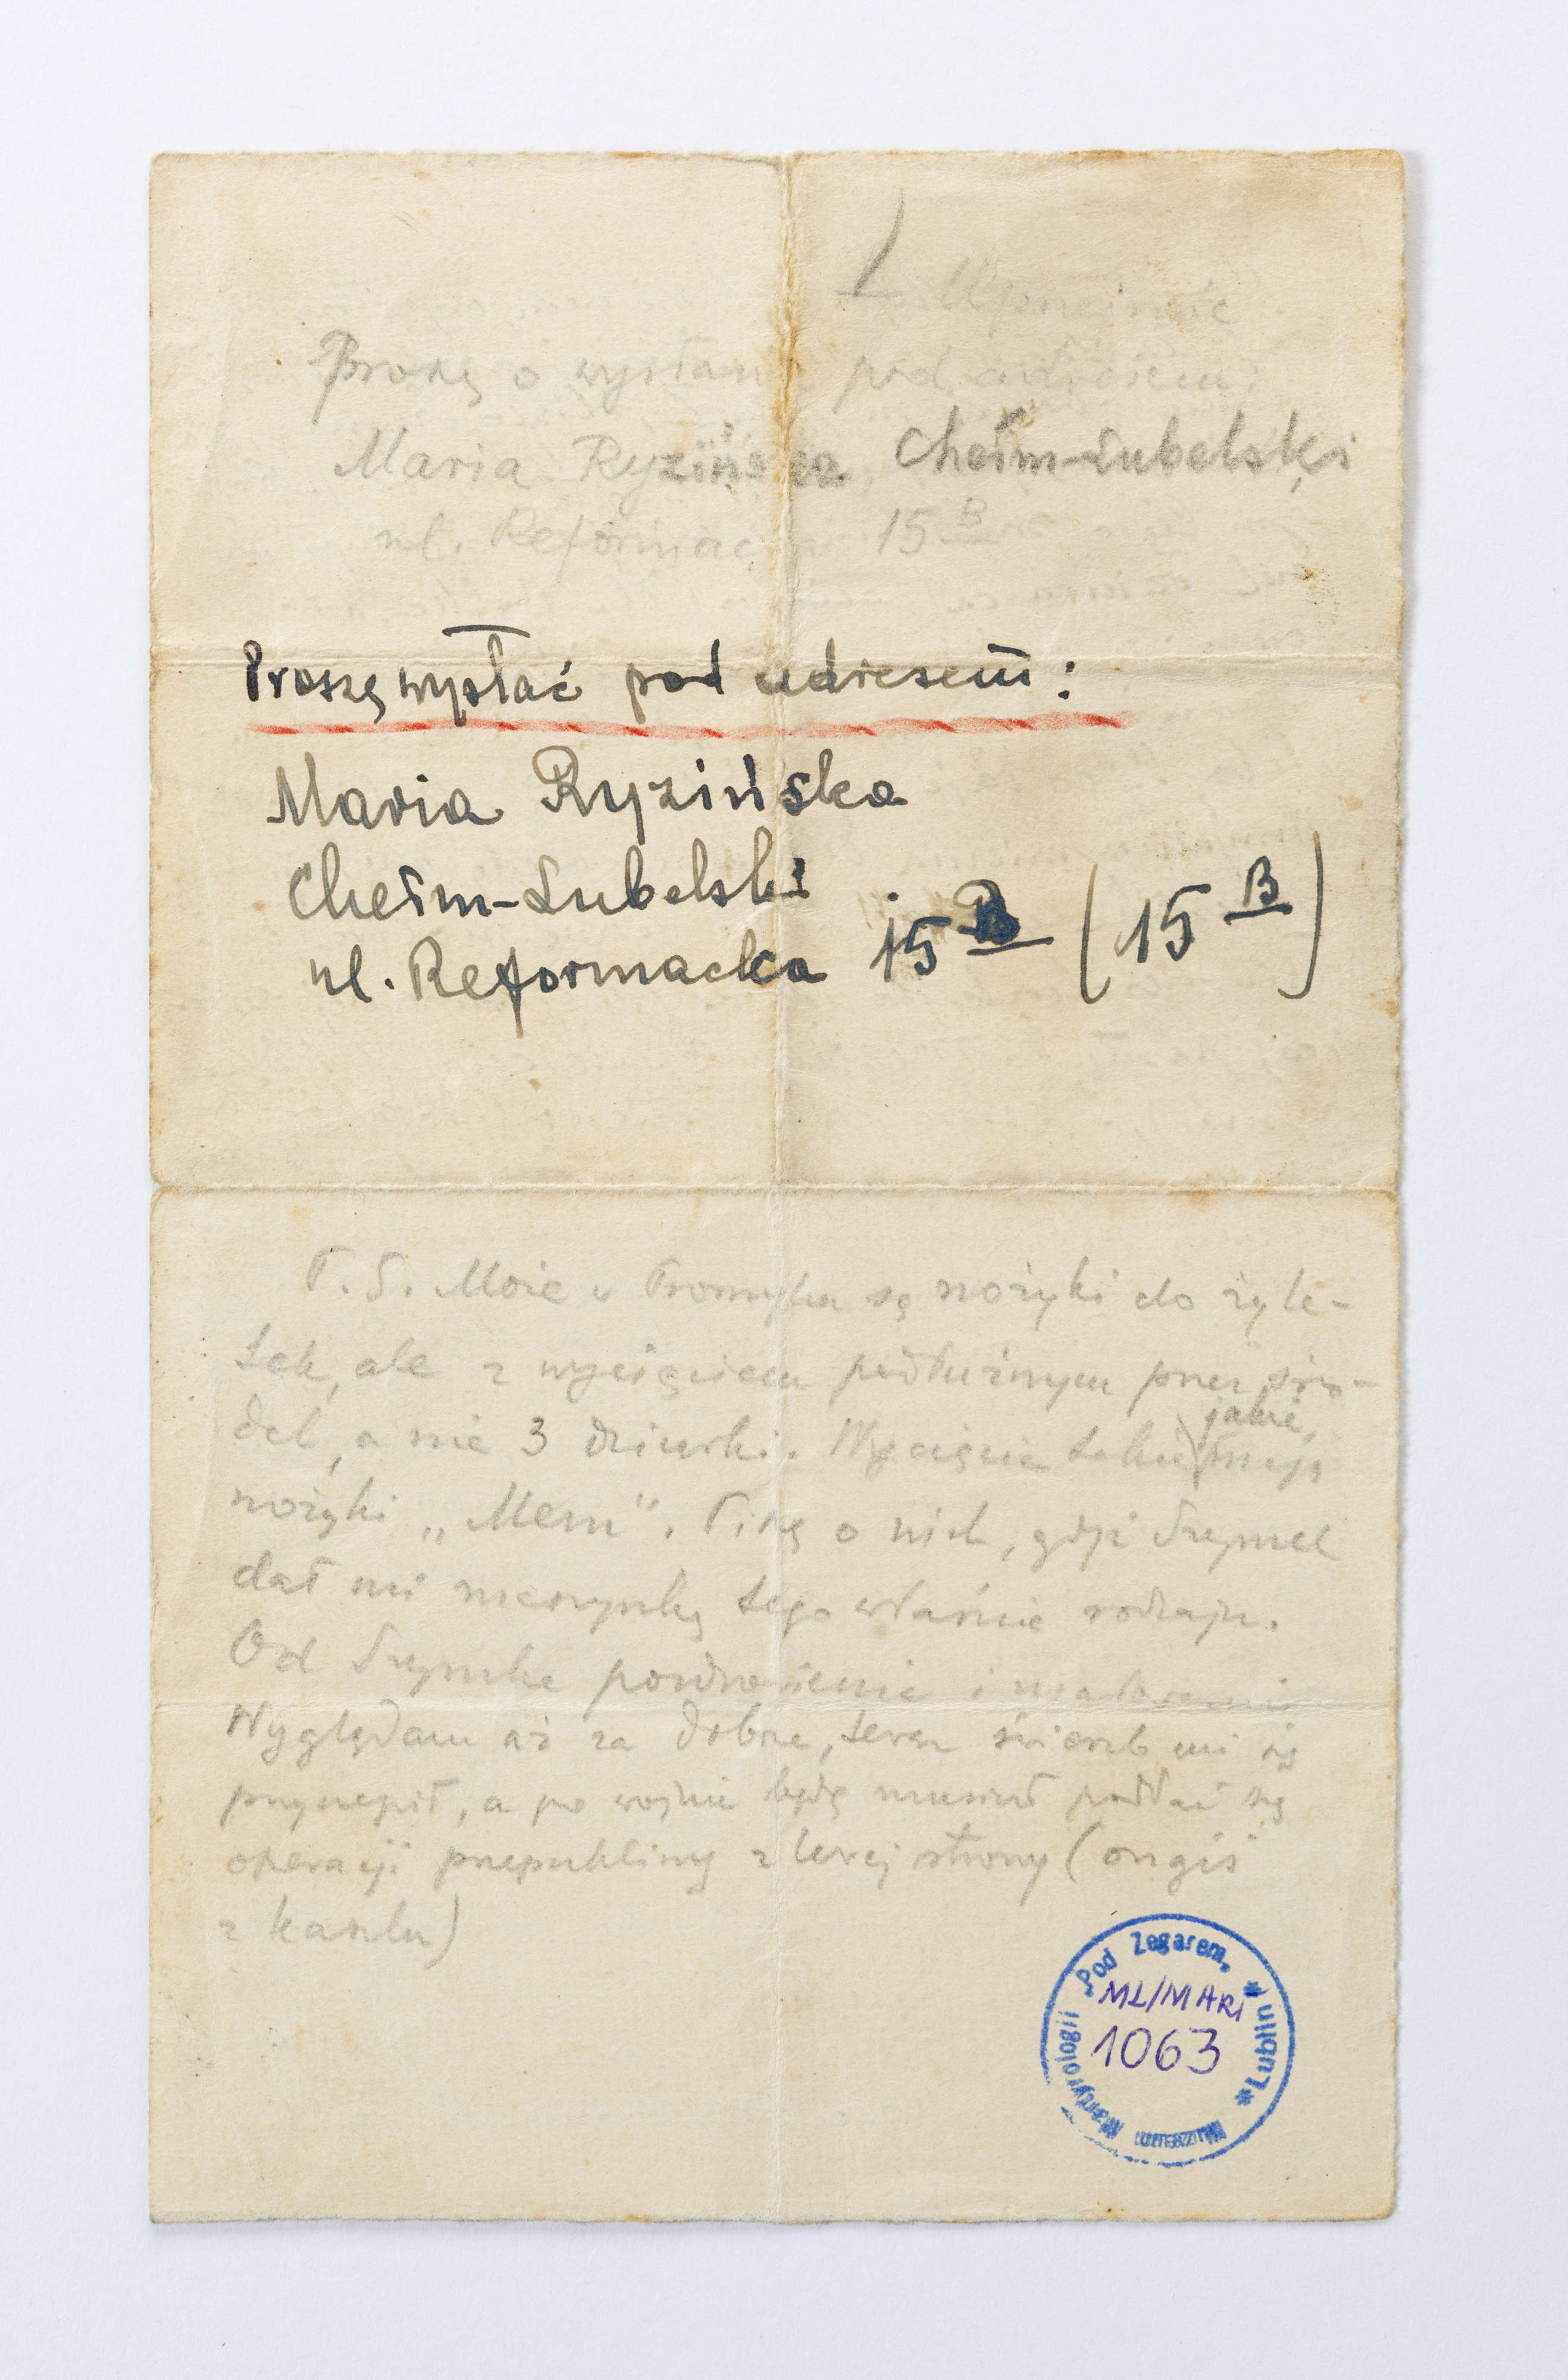 Uprzejmie
Proszę o wysłanie pod adresem:
Maria Ryzińska, Chełm-Lubelski
ul. Reformacka 15 B
Proszę wysłać pod adresem:
Maria Ryzińska
Chełm-Lubelski
ul. Reformacka 15 B (15 B)
P.S. Może u Promyka są nożyki do żyle-
tek, ale z wycięciem podłużnym przez śro-
dek, a nie 3 dziurki. Wycięcie takie, jakie
mają
nożyki „Mem”. Piszę o nich, gdyż Szymek
dał mi maszynkę tego właśnie rodzaju.
Od Szymka pozdrowienia i
Wyglądam aż za dobrze, teraz świerzb mi się
przyczepił, a po wojnie będę musiał poddać się
operacji przepukliny z lewej strony (ongiś
z kaszlu)
Muzeum Martyrologii „Pod Zegarem” * Lublin *
ML/MAR/
1063